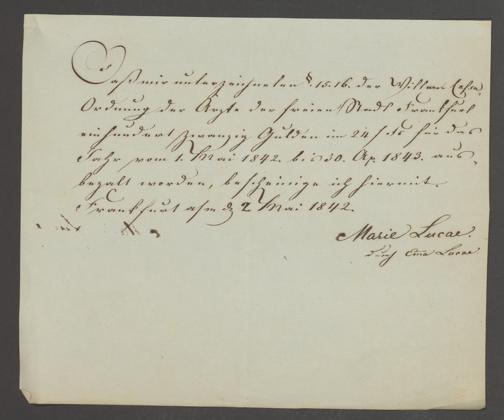 Daß mir unterzeichneten §. 15. 16. der Wittwen Casse
Ordnung der Ärzte der freien Stadt Frankfurt
einhundert zwanzig Gulden im 24 f. Fs für das
Jahr vom 1. Mai 1842. bis 30. Ap. 1843. aus-
bezalt worden, bescheinige ich hiermit.
Frankfurt a/m d 2 Mai 1842.
Marie Lucae.
durch Lucae.